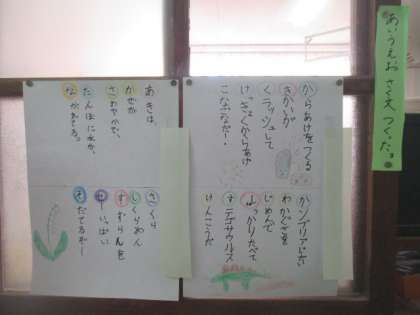 あいうえお さく文 つくった。
からあけをつくる
きかいが
クラッシュして
けっきょくからあけ
こなごなだ！
カンブリアにたい
わかくさを
じめんで
しっかりたべて、
ステゴサウルス
けんこうだ
あきは、
かぜが
さわやかで、
たんぼに水が、
ながれてる。
さくら
しくらめん
すずらんを
せいいっぱい
そだてるぞー